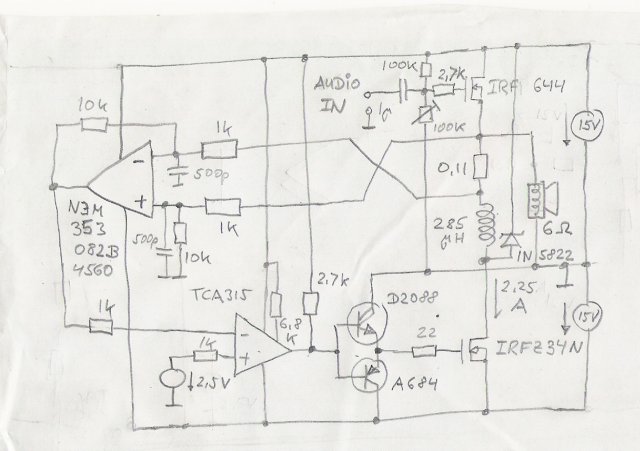 100K
AUDIO
IN
1µ
2,7K
IRF 644
100K
15V
10K
1K
500p
0,11
6Ω
285
µH
1N 5822
NJM
353
082B
4560
500p
10K
1K
TCA315
2,7K
6,8
K
D2088
2,25
A
15V
1K
1K
2,5V
22
IRFZ34N
A684
-
+
-
+